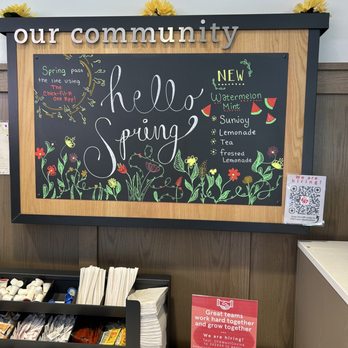 our community
Spring past
the line using
The
Chick-fil-A
One App!
hello
Spring
NEW
Watermelon
Mint
Sunjoy
Lemonade
Tea
Frosted
Lemonade
We are
hiring!
Great teams
work hard together
and grow together
We are
hiring!